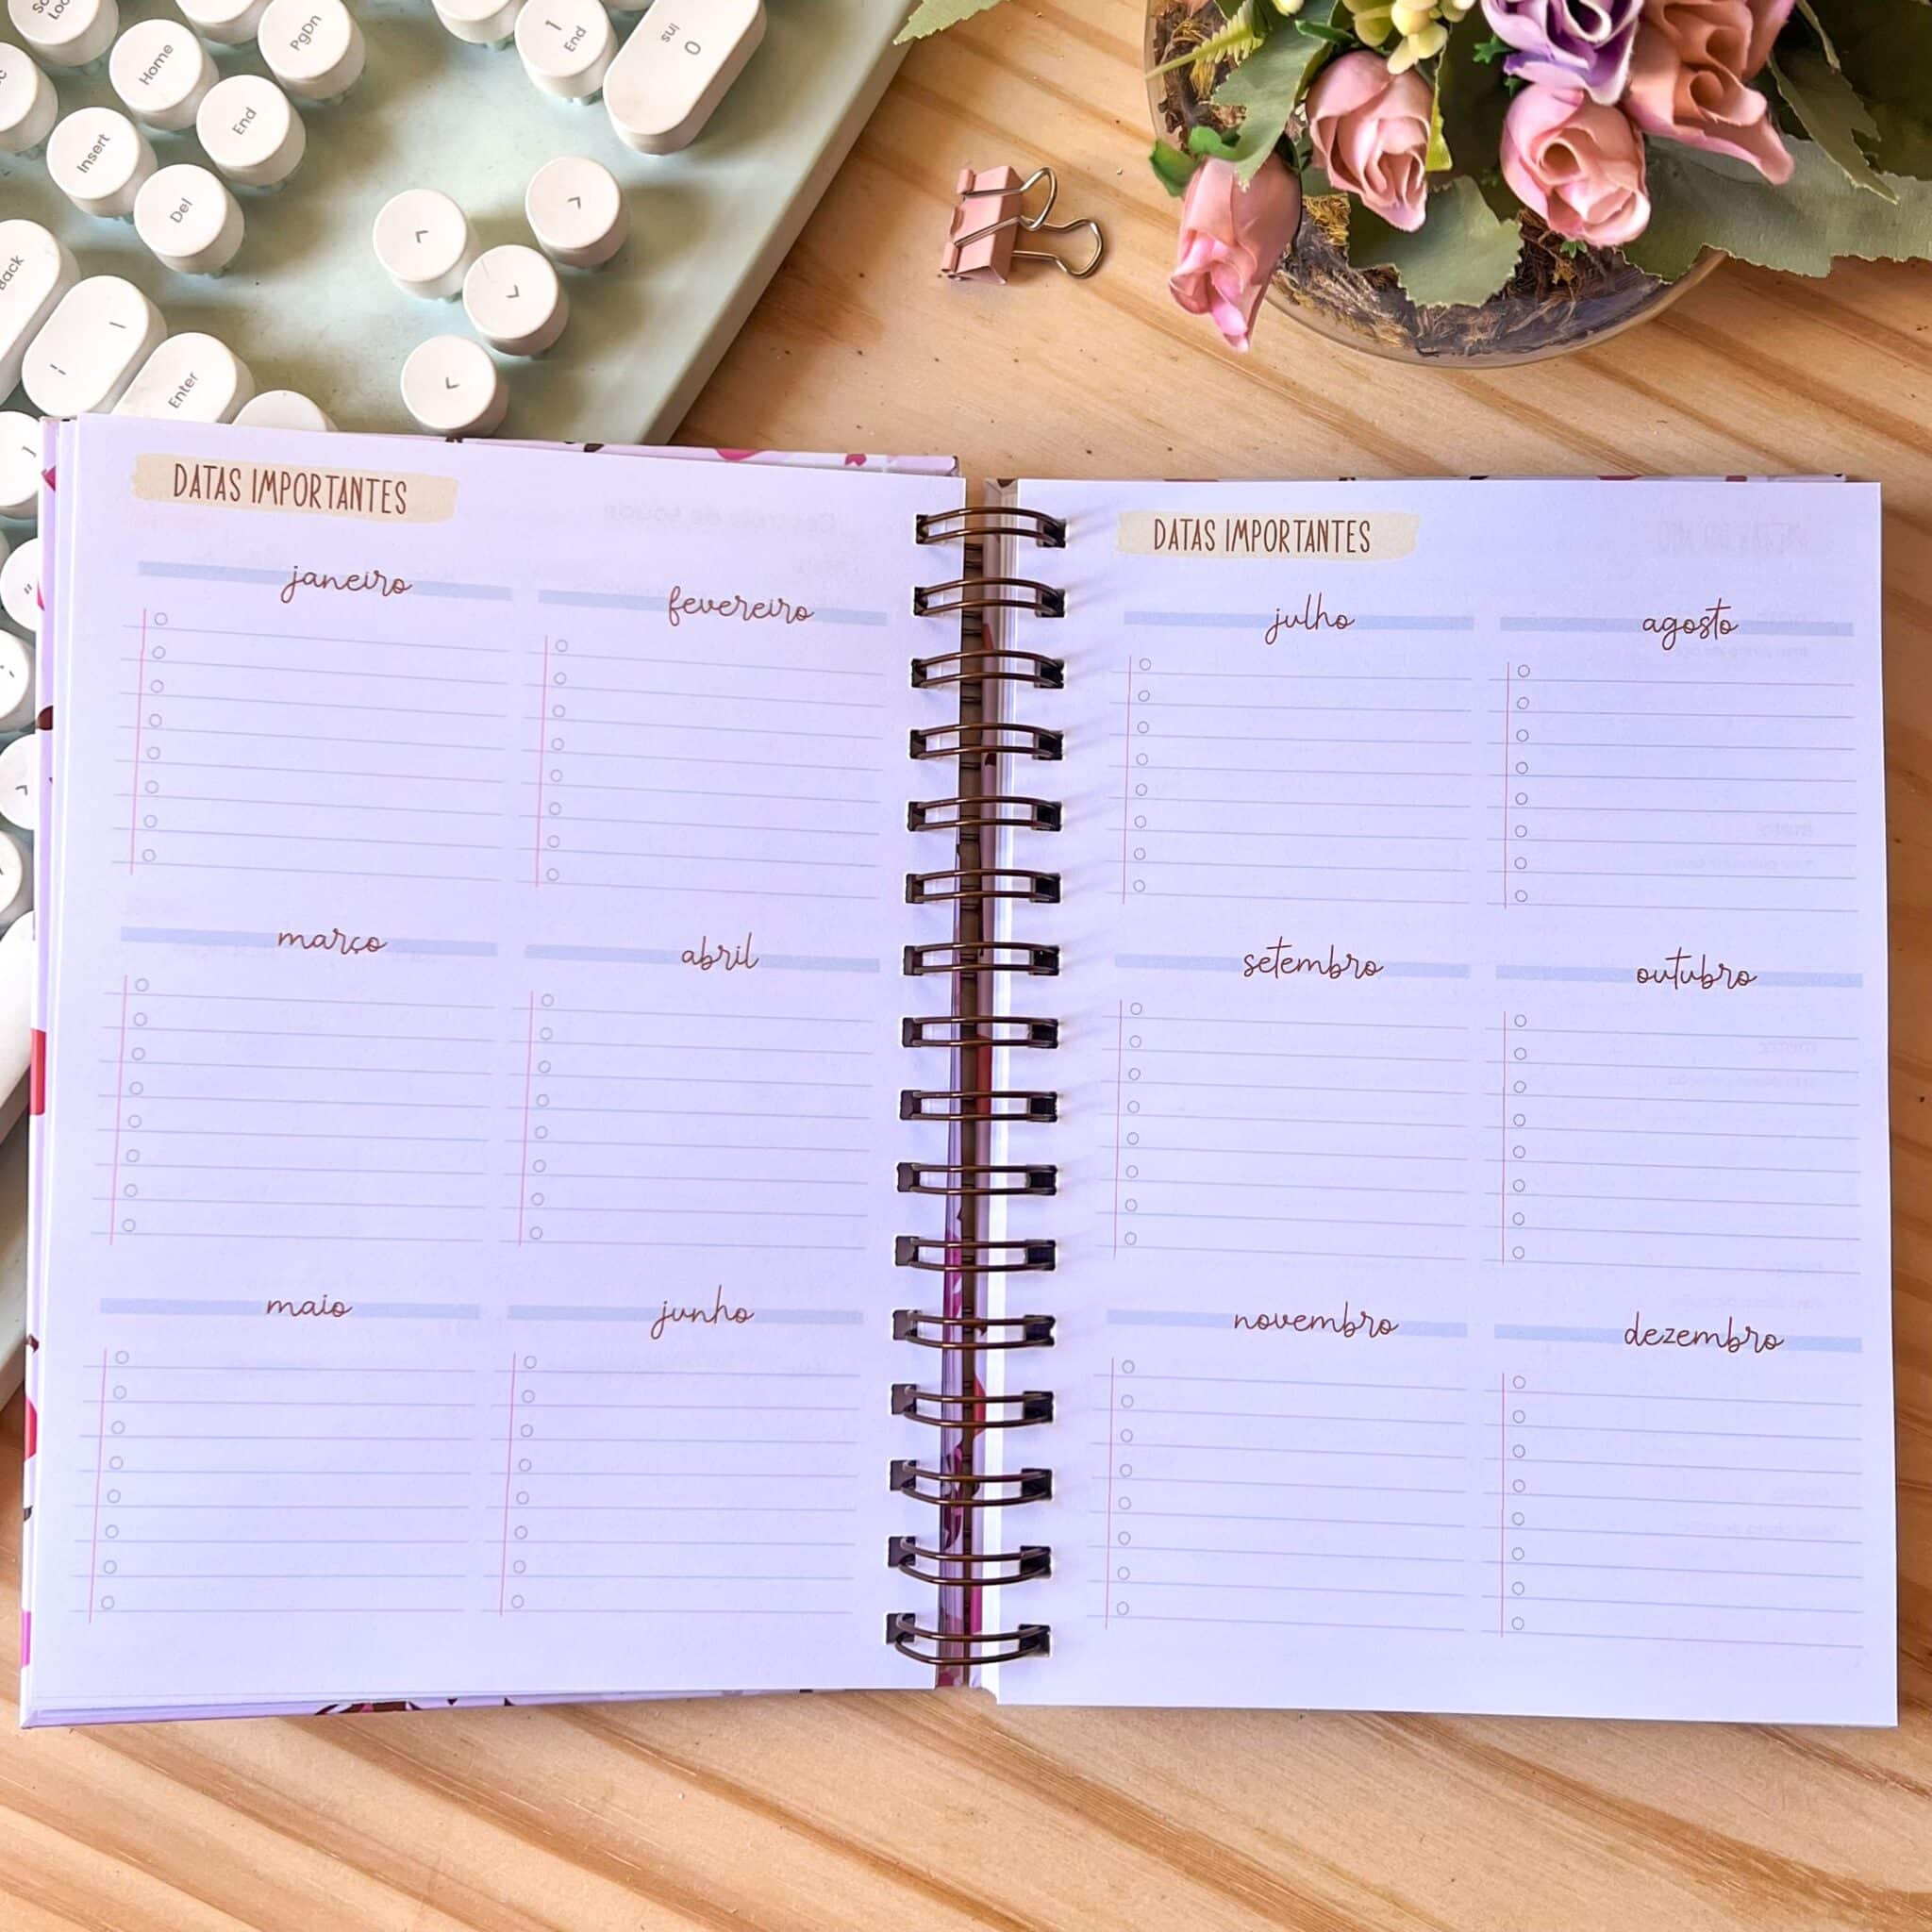 Home
PgDn
1
End
0
Ins
Insert
End
Del
Back
Enter
DATAS IMPORTANTES
janeiro
fevereiro
março
abril
maio
junho
DATAS IMPORTANTES
julho
agosto
setembro
outubro
novembro
dezembro